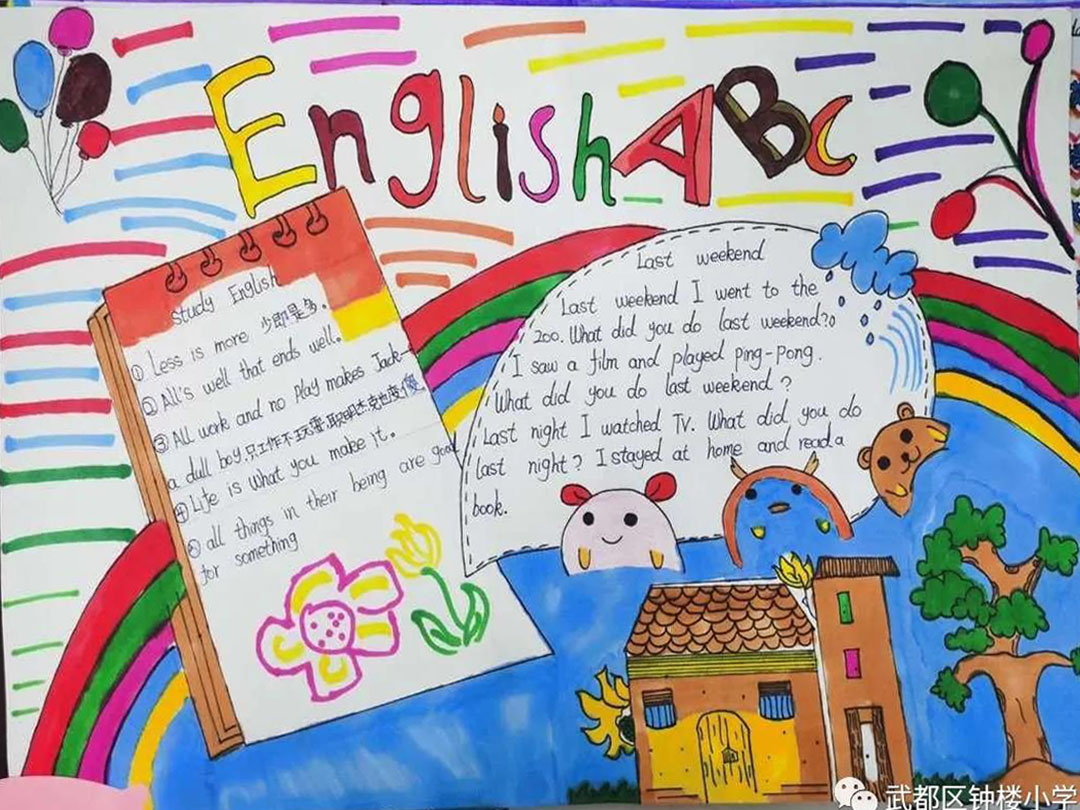 English ABC
Study English
① Less is more 少即是多。
② All's well that ends well.
③ All work and no play makes Jack
a dull boy.只工作不玩耍.聪明杰克也变傻
④ Life is what you make it.
⑤ all things in their being are good
for something
Last weekend
Last weekend I went to the
zoo. What did you do last weekend?
I saw a film and played ping-pong.
What did you do last weekend?
Last night I watched Tv. What did you do
last night? I stayed at home and read a
book.
武都区钟楼小学